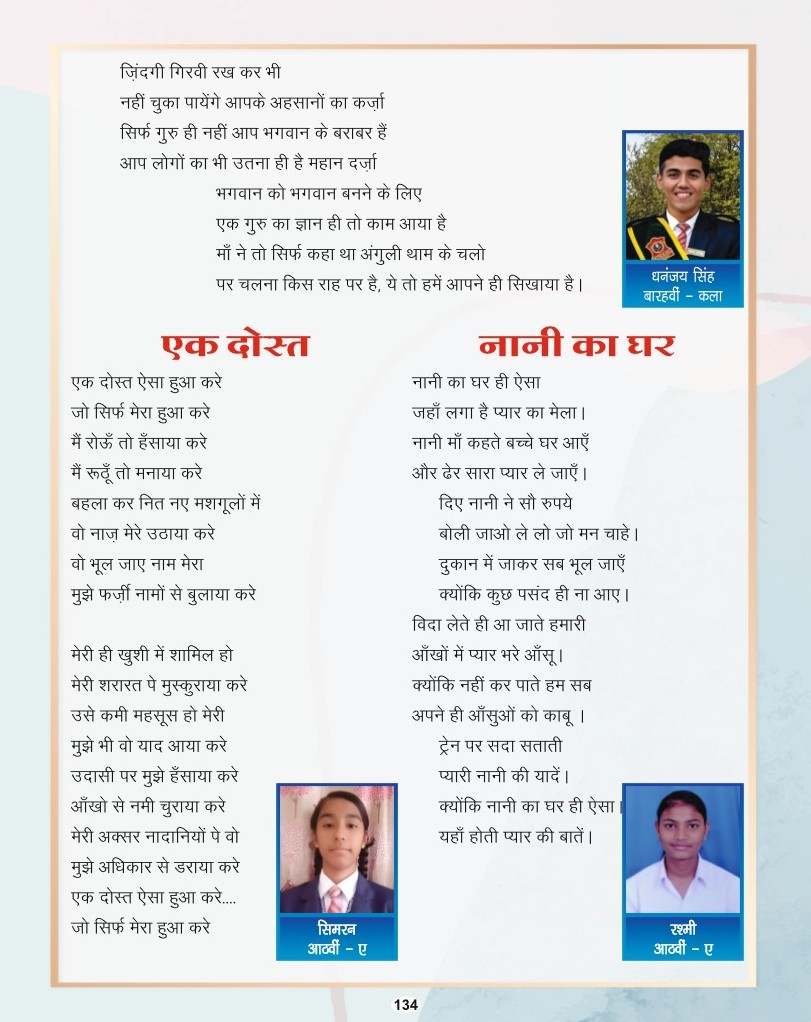 ज़िंदगी गिरवी रख कर भी
नहीं चुका पायेंगे आपके अहसानों का कर्ज़ा
सिर्फ गुरु ही नहीं आप भगवान के बराबर हैं
आप लोगों का भी उतना ही है महान दर्ज़ा
भगवान को भगवान बनने के लिए
एक गुरु का ज्ञान ही तो काम आया है
माँ ने तो सिर्फ कहा था अंगुली थाम के चलो
पर चलना किस राह पर है, ये तो हमें आपने ही सिखाया है।
धनंजय सिंह
बारहवीं - कला
एक दोस्त
एक दोस्त ऐसा हुआ करे
जो सिर्फ मेरा हुआ करे
मैं रोऊँ तो हँसाया करे
मैं रूठूँ तो मनाया करे
बहला कर नित नए मशगूलों में
वो नाज़ मेरे उठाया करे
वो भूल जाए नाम मेरा
मुझे फर्ज़ी नामों से बुलाया करे
मेरी ही खुशी में शामिल हो
मेरी शरारत पे मुस्कुराया करे
उसे कमी महसूस हो मेरी
मुझे भी वो याद आया करे
उदासी पर मुझे हँसाया करे
आँखो से नमी चुराया करे
मेरी अक्सर नादानियों पे वो
मुझे अधिकार से डराया करे
एक दोस्त ऐसा हुआ करे....
जो सिर्फ मेरा हुआ करे
सिमरन
आठवीं - ए
नानी का घर
नानी का घर ही ऐसा
जहाँ लगा है प्यार का मेला।
नानी माँ कहते बच्चे घर आएँ
और ढेर सारा प्यार ले जाएँ।
दिए नानी ने सौ रुपये
बोली जाओ ले लो जो मन चाहे।
दुकान में जाकर सब भूल जाएँ
क्योंकि कुछ पसंद ही ना आए।
विदा लेते ही आ जाते हमारी
आँखों में प्यार भरे आँसू।
क्योंकि नहीं कर पाते हम सब
अपने ही आँसुओं को काबू ।
ट्रेन पर सदा सताती
प्यारी नानी की यादें।
क्योंकि नानी का घर ही ऐसा।
यहाँ होती प्यार की बातें।
रश्मी
आठवीं - ए
134